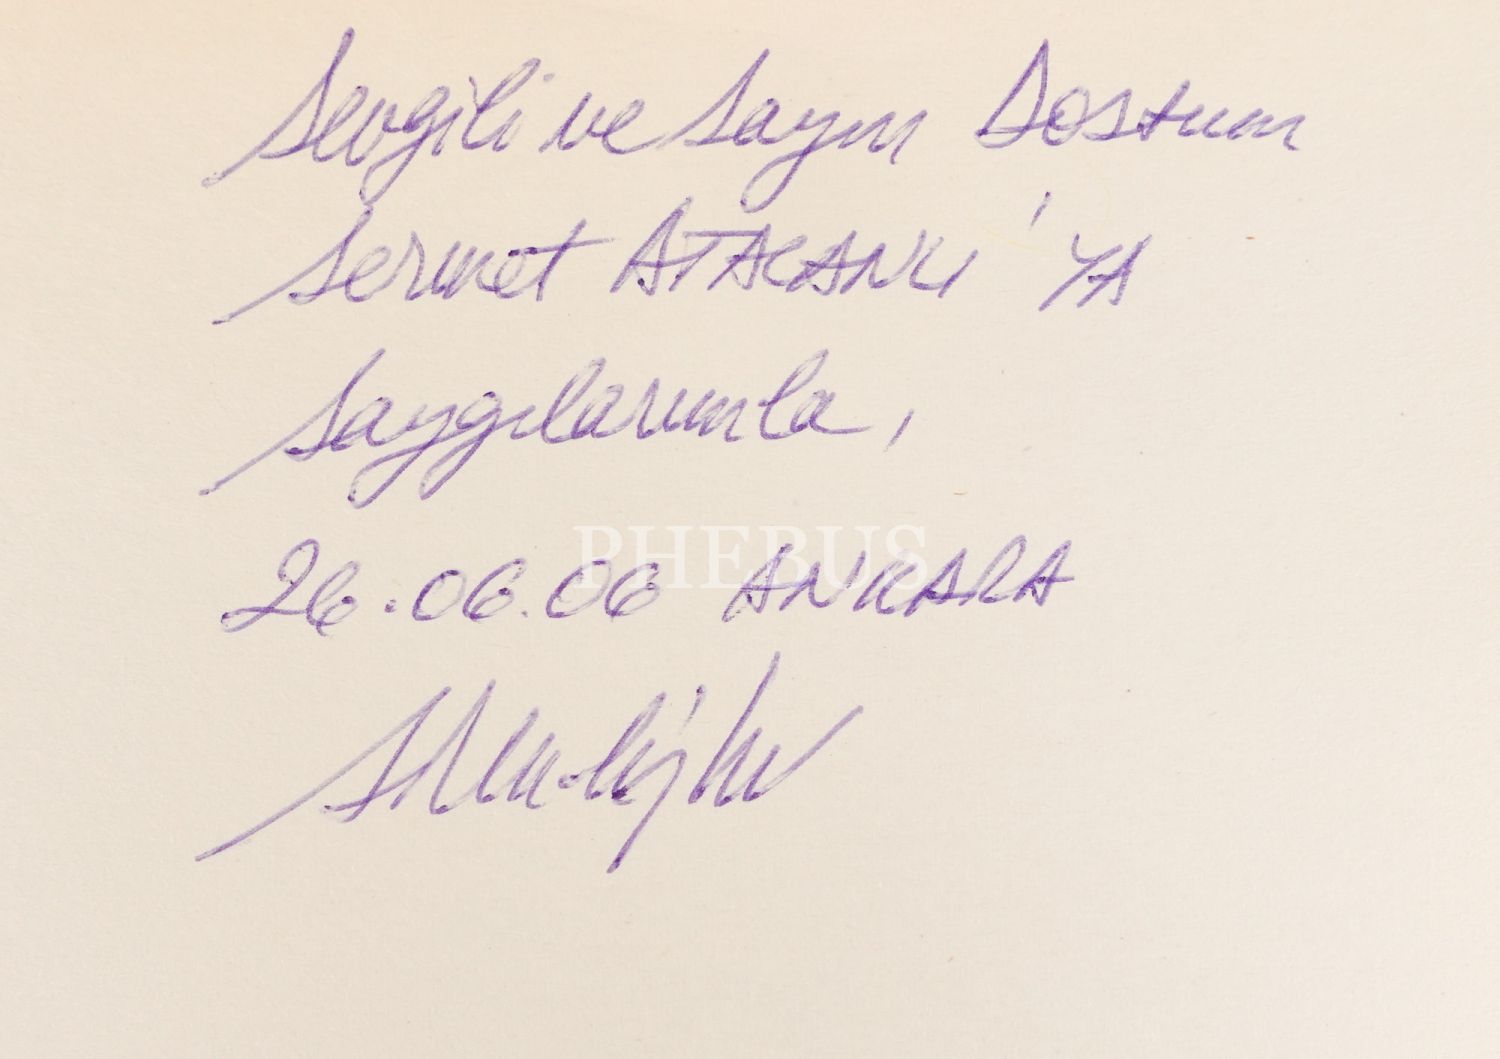 Sevgili ve Sayın Dostum
Sermet ATACANLI'YA
Saygılarımla,
26.06.06 ANKARA
PHEBUS